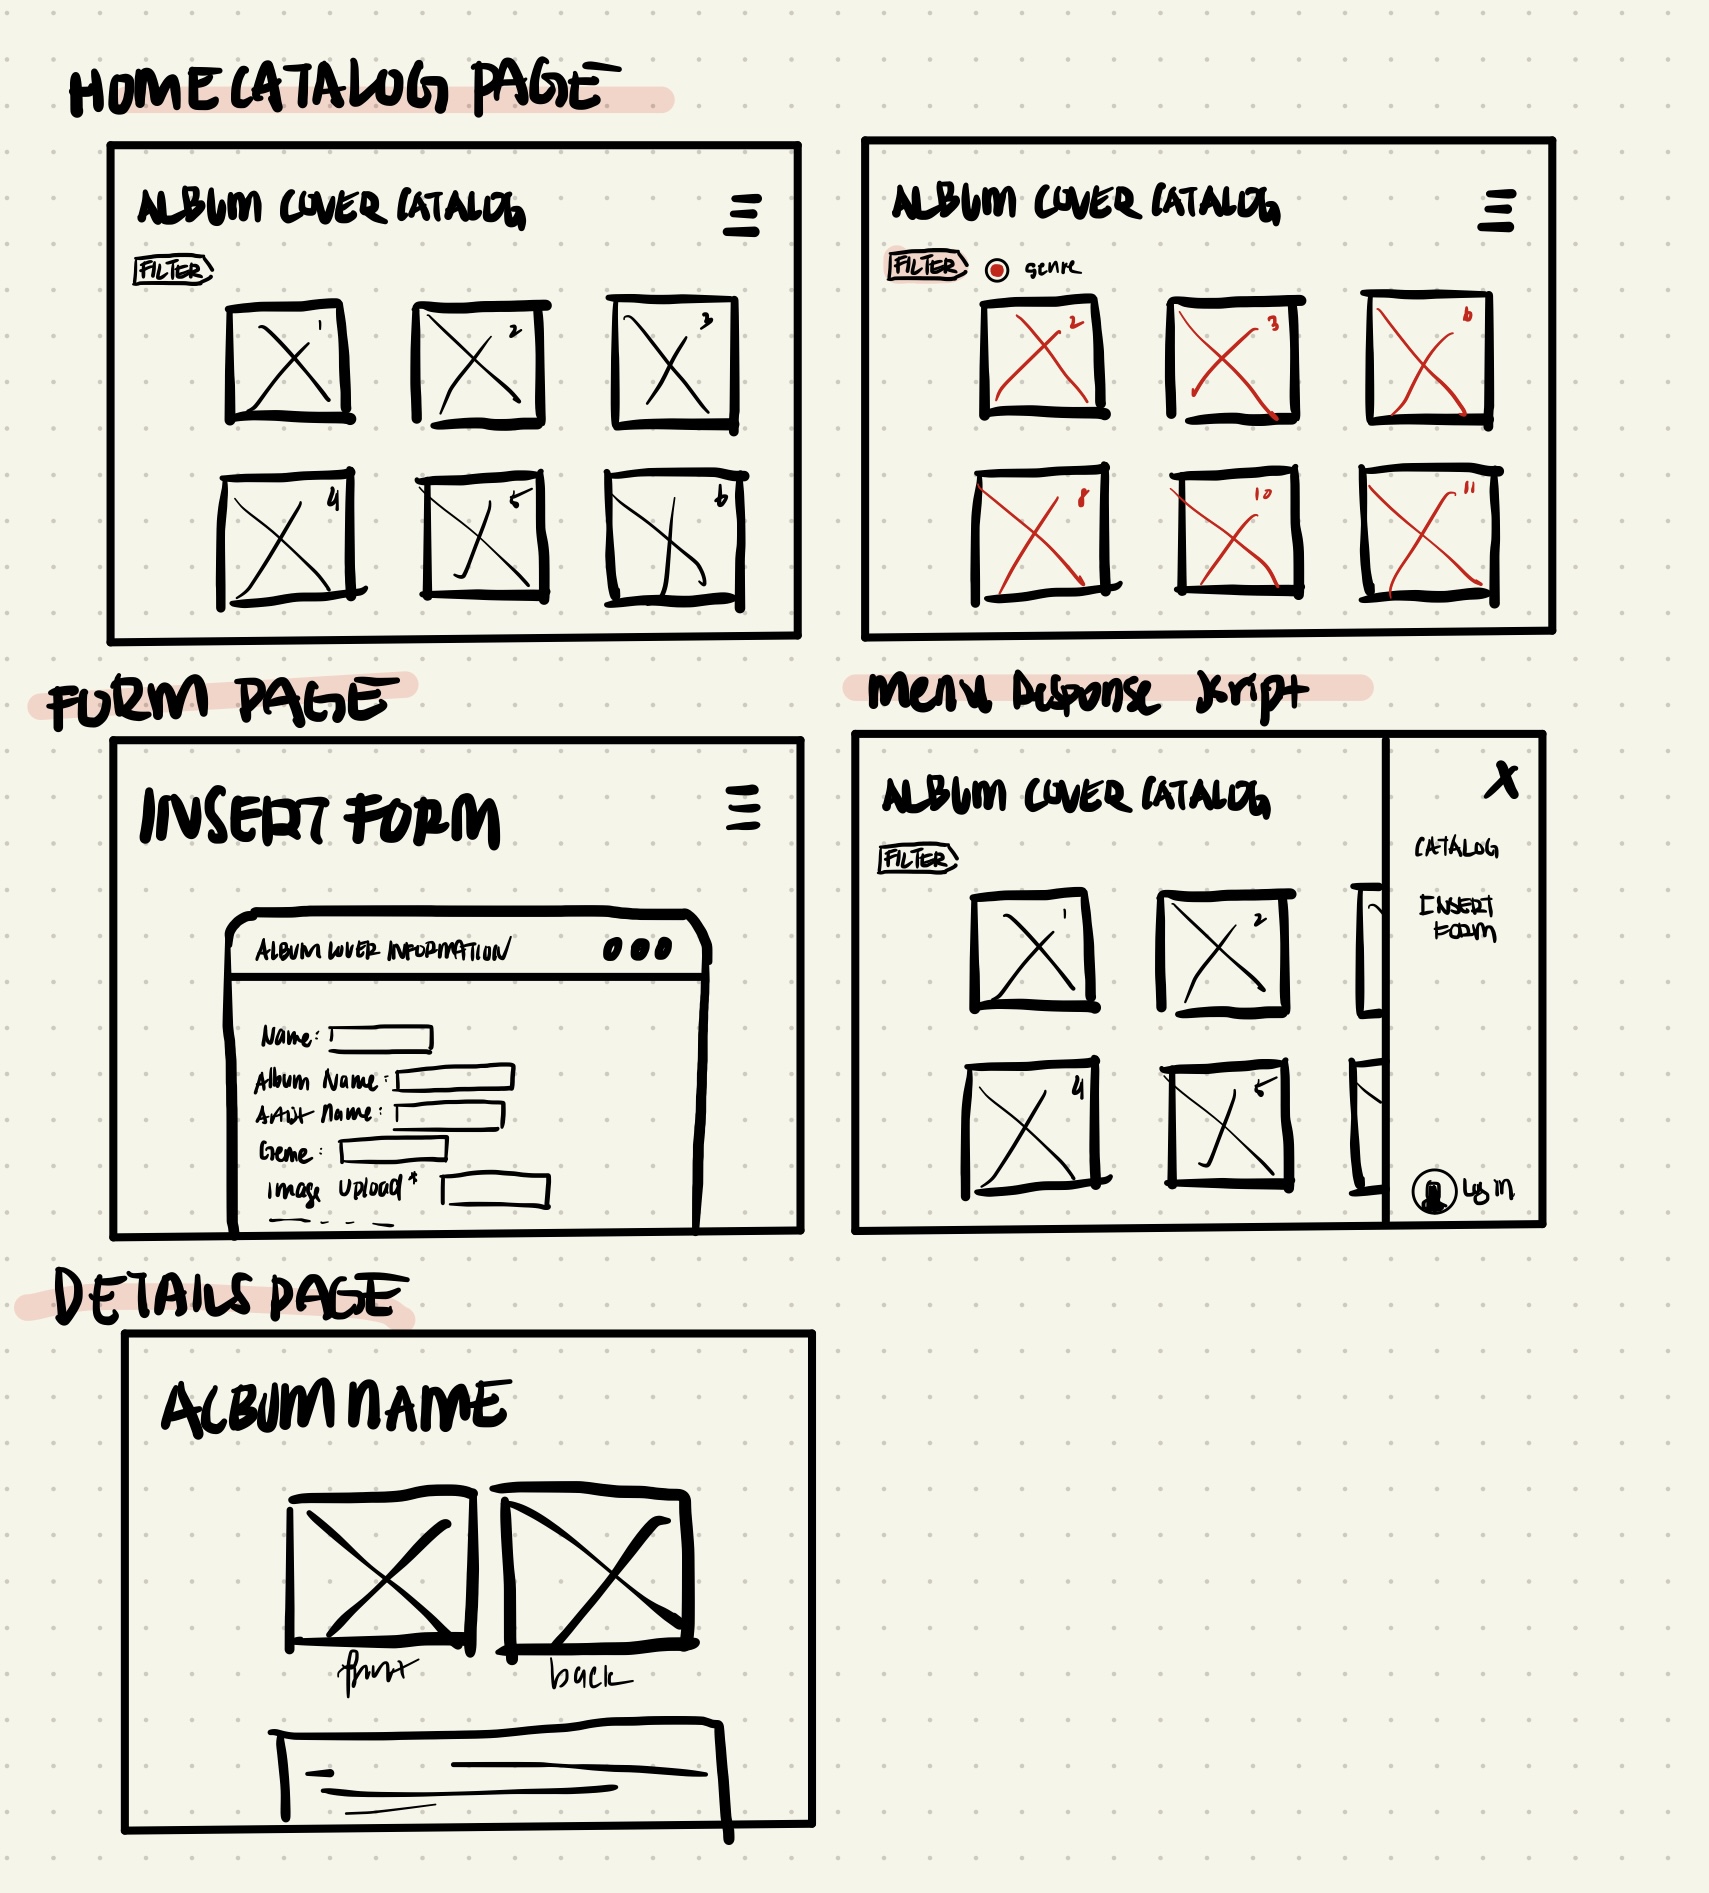 HOME CATALOG PAGE
ALBUM COVER CATALOG
FILTER
1 2 3
4 5 6
ALBUM COVER CATALOG
FILTER genre
2 3 6
8 10 11
FORM PAGE
INSERT FORM
ALBUM COVER INFORMATION
Name:
Album Name:
Artist Name:
Genre:
Image Upload*
Menu Response Script
ALBUM COVER CATALOG
X
FILTER
CATALOG
INSERT
FORM
1 2
4 5
Log in
DETAILS PAGE
ALBUM NAME
front back